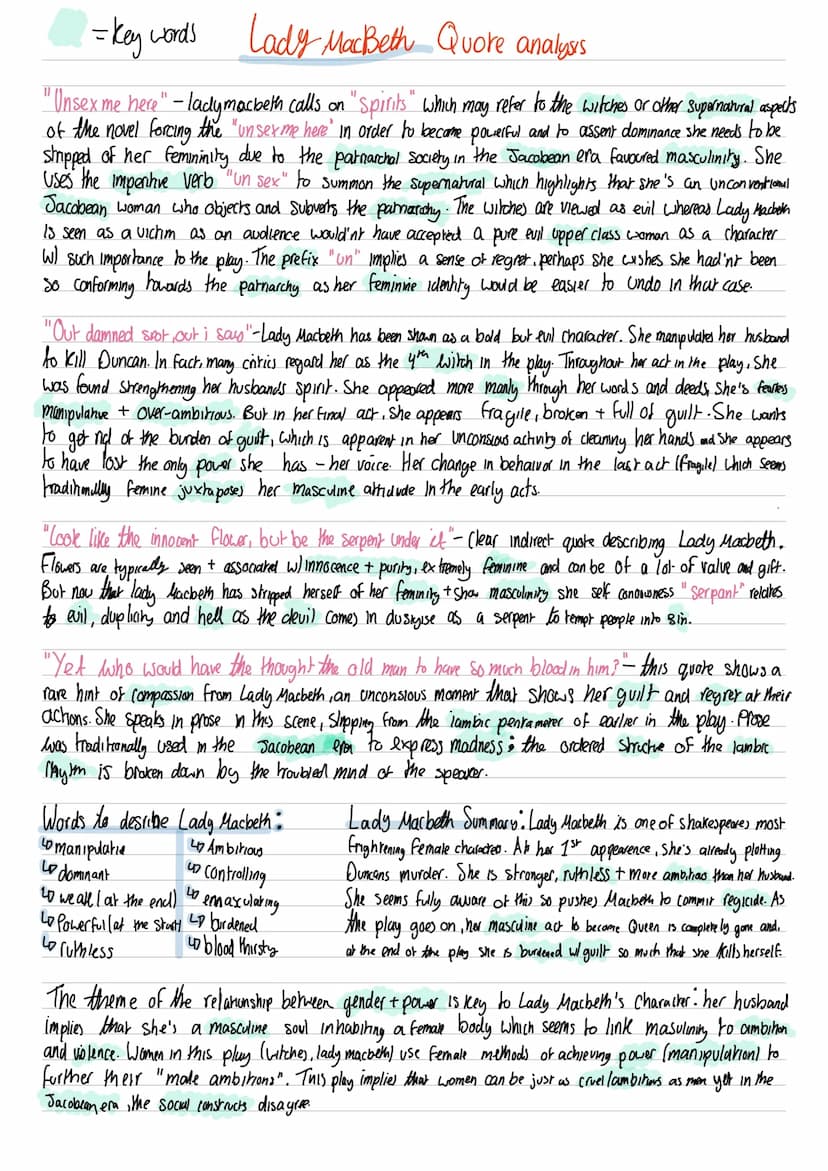 = Key words Lady MacBeth Quote analysis
"Unsex me here" - lady macbeth calls on "spirits" which may refer to the witches or other supernatural aspects
of the novel forcing the "unsex me here" in order to become powerful and to assent dominance she needs to be
stripped of her femininity due to the patriarchal society in the Jacobean era favoured masculinity. She
uses the imperitive verb "un sex" to summon the supernatural which highlights that she's an unconventional
Jacobean woman who objects and subverts the patriarchy. The witches are viewed as evil whereas Lady Macbeth
is seen as a victim as an audience would'nt have accepted a pure evil upper class woman as a character
w/ such importance to the play. The prefix "un" implies a sense of regret, perhaps she wishes she had'nt been
so conforming towards the patriarchy as her feminine identity would be easier to undo in that case.
"Out damned spot, out i say" - Lady Macbeth has been shown as a bold but evil character. She manipulates her husband
to kill Duncan. In fact, many critics regard her as the 4th witch in the play. Throughout her act in the play, she
was found strengthening her husbands spirit. She appeared more manly through her words and deeds, she's fearles
manipulative + over-ambitious. But in her final act, she appears fragile, broken + full of guilt. She wants
to get rid of the burden of guilt, which is apparent in her unconsious activity of cleaning her hands and she appears
to have lost the only power she has - her voice. Her change in behaivor in the last act (fragile) which seems
traditinally femine juxtaposes her masculine attidude in the early acts.
"Look like the innocent flower, but be the serpent under it" - Clear indirect quote describing Lady Macbeth.
Flowers are typically seen + associated w/ innocence + purity, extremely feminine and can be of a lot of value and gift.
But now that lady Macbeth has stripped herself of her feminity + show masculinity she self "serpant" relates
to evil, duplicity and hell as the devil comes in disguise as a serpent to tempt people into sin.
"Yet who would have the thought the old man to have so much blood in him?" - this quote shows a
rare hint of compassion from Lady Macbeth, an unconsious moment that shows her guilt and regret at their
actions. She speaks in prose in this scene, slipping from the iambic pentameter of earlier in the play. Prose
was traditionally used in the Jacobean era to express madness; the ordered structue of the iambic
rhythm is broken down by the troubled mind of the speaker.
Words to desribe Lady Macbeth:
↳ manipulative ↳ Ambitious
↳ dominant ↳ controlling
↳ weak (at the end) ↳ emasculating
↳ Powerful (at the start) ↳ burdened
↳ ruthless ↳ blood thirsty
Lady Macbeth Summary: Lady Macbeth is one of shakespeares most
frightening female characters. At her 1st appearence, she's already plotting
Duncans murder. She is stronger, ruthless + more ambitious than her husband.
She seems fully aware of this so pushes Macbeth to commit regicide. As
the play goes on, her masculine act to become Queen is completely gone and,
at the end of the play she is burdened w/ guilt so much that she kills herself.
The theme of the relationship between gender + power is key to Lady Macbeth's character: her husband
implies that she's a masculine soul inhabiting a female body which seems to link masulinity to ambition
and violence. Women in this play (witches, lady macbeth) use female methods of achieving power (manipulation) to
further their "male ambitions". This play implies that women can be just as cruel/ambitious as men yet in the
Jacobean era, the social constructs disagree.